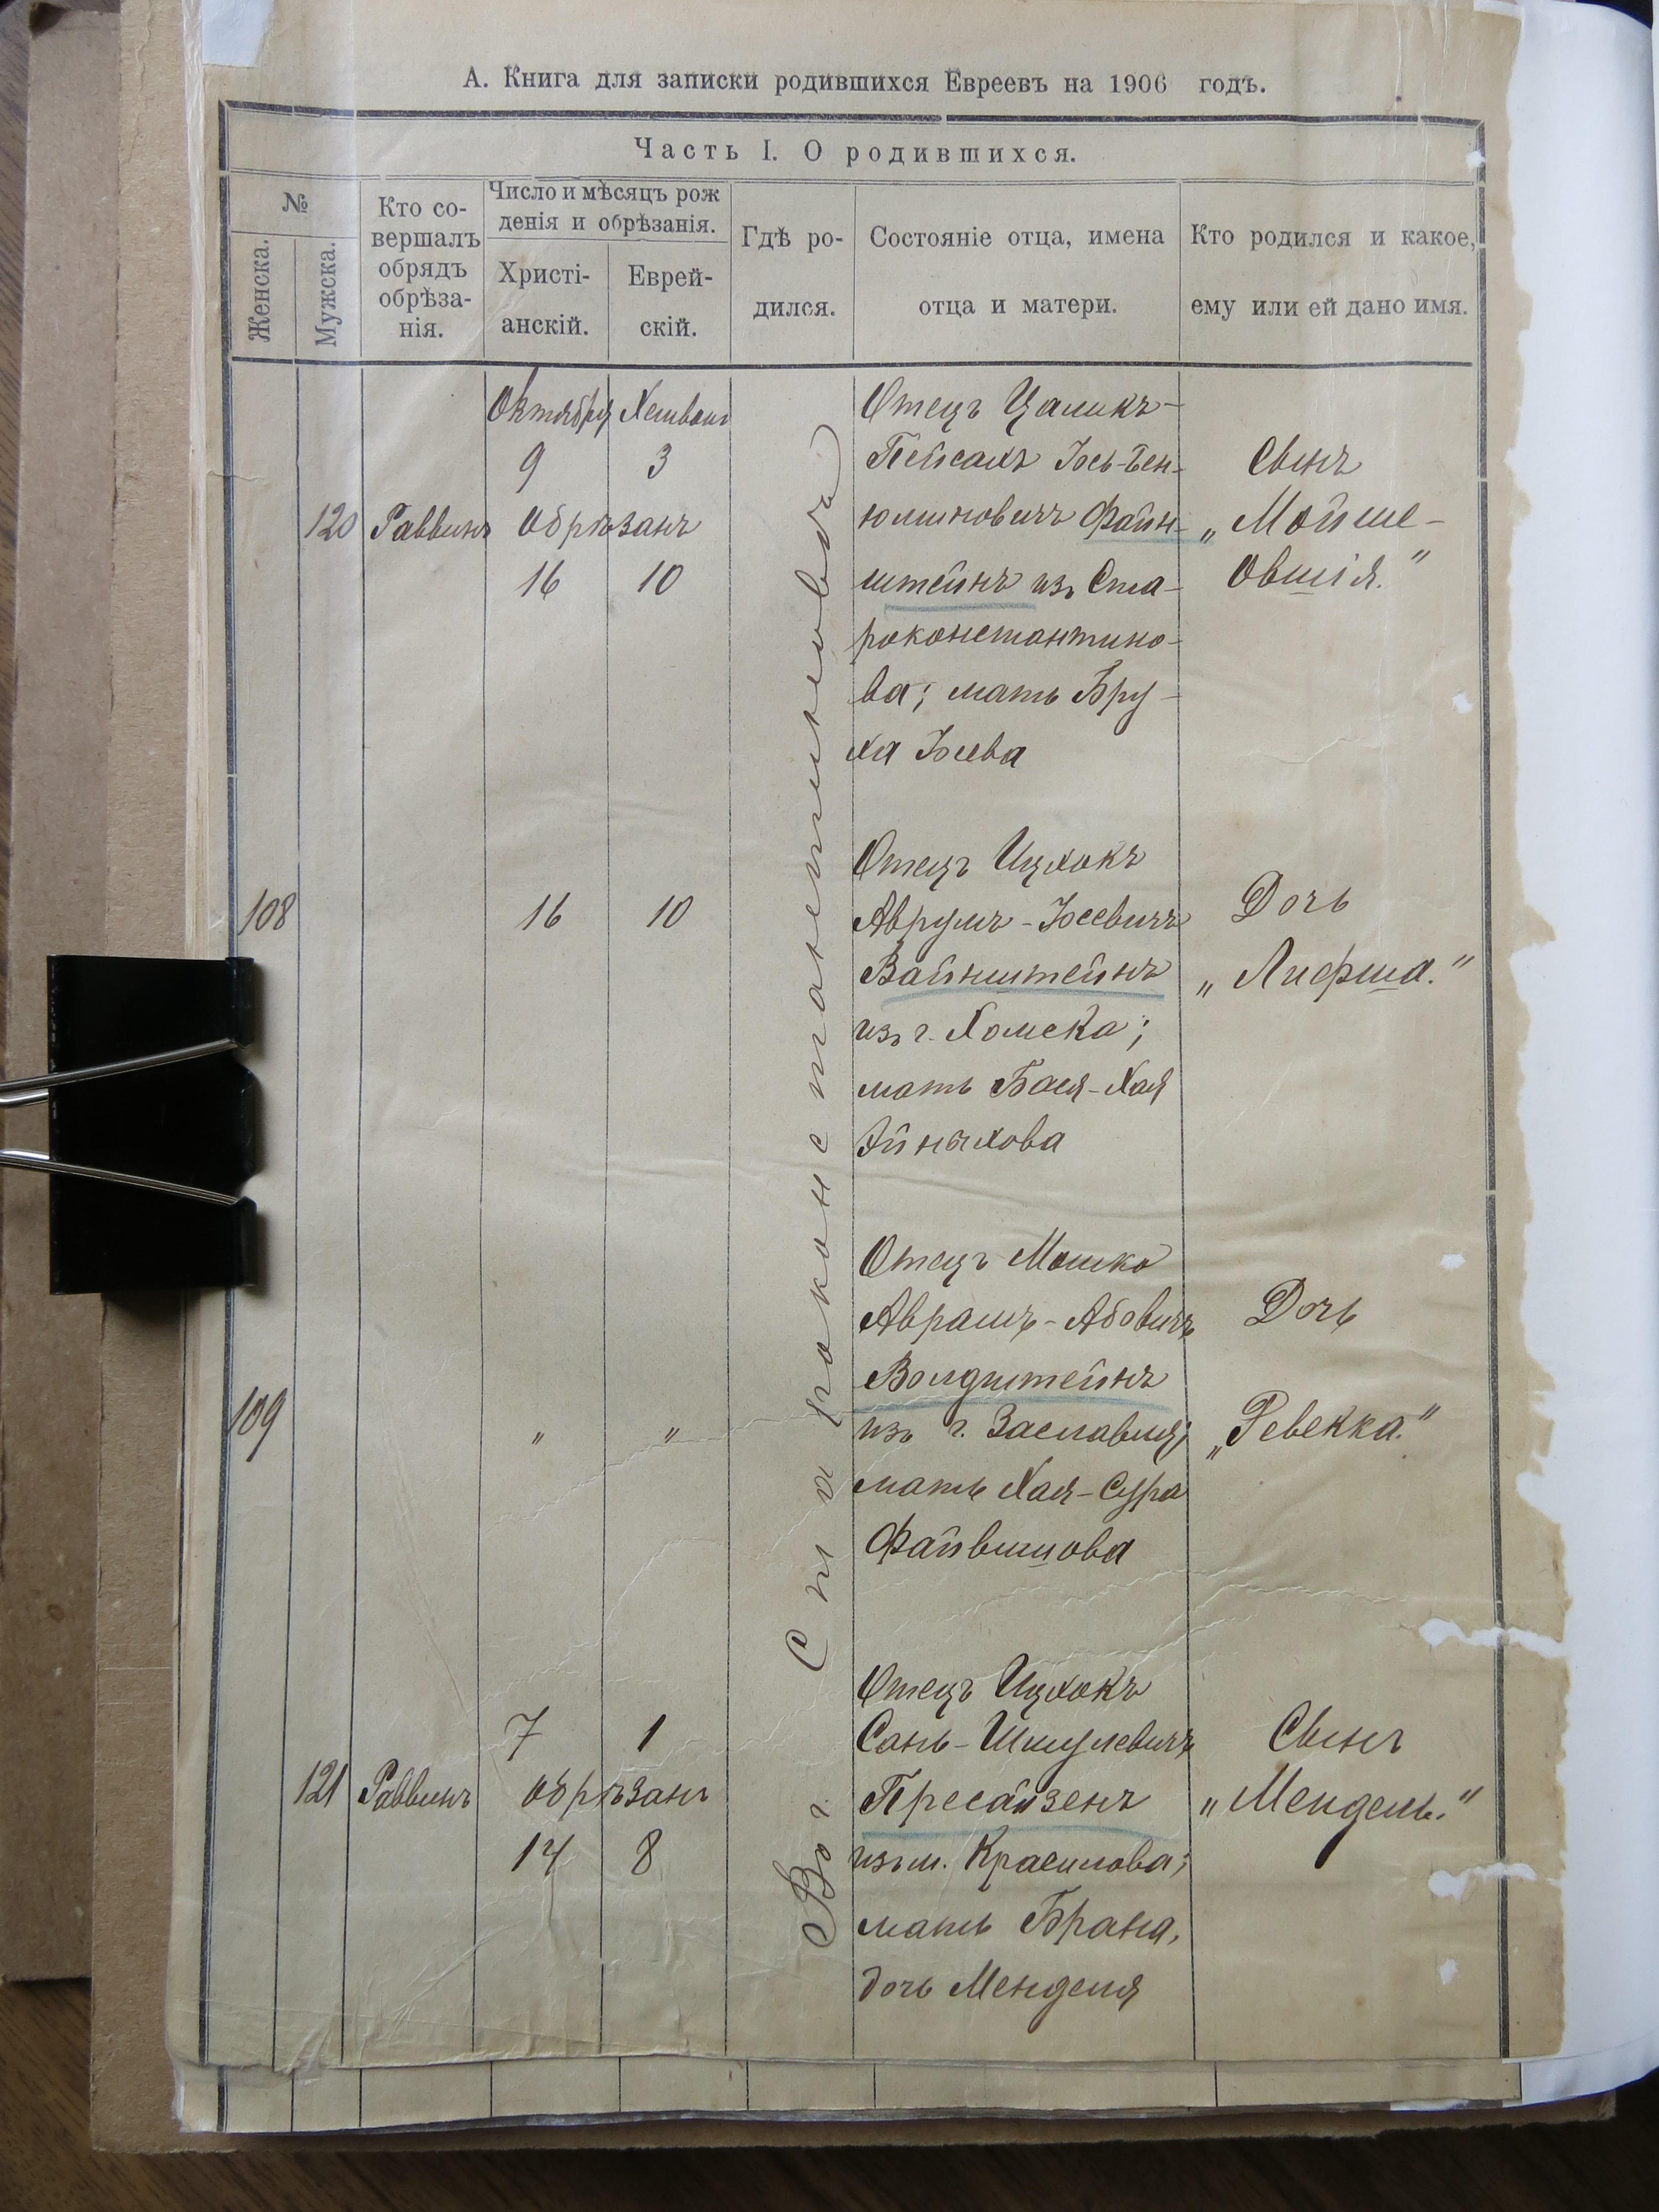 А. Книга для записки родившихся Евреевъ на 1906 годъ.
Часть I. О родившихся.
№
Женска.
Мужска.
Кто со-
вершалъ
обрядъ
обрѣза-
нія.
Число и мѣсяцъ рож
денія и обрѣзанія.
Христі-
анскій.
Еврей-
скій.
Гдѣ ро-
дился.
Состояніе отца, имена
отца и матери.
Кто родился и какое,
ему или ей дано имя.
Въ г. Староконстантиновѣ
120
Раввинъ
Октября Хешвана
9 3
обрѣзанъ
16 10
Отецъ Цаликъ-
Пейсахъ Іось-Бен-
юминовичъ Файн-
штейнъ изъ Ста-
роконстантино-
ва; мать Бру-
ха Іосева
Сынъ
„Мойше-
Овшія."
108
16 10
Отецъ Ицхокъ
Аврумъ-Іосевичъ
Вайнштейнъ
изъ г. Хомска;
мать Бася-Хая
Эйныхова
Дочь
„Лифша."
109
" "
Отецъ Мошко
Аврамъ-Абовичъ
Волдштейнъ
изъ г. Заславля;
мать Хая-Сура
Файвишова
Дочь
„Ревекка."
121
Раввинъ
7 1
обрѣзанъ
14 8
Отецъ Ицхокъ
Сань-Шмулевичъ
Пресайзенъ
изъ м. Красилова;
мать Брана,
дочь Менделя
Сынъ
„Мендель."